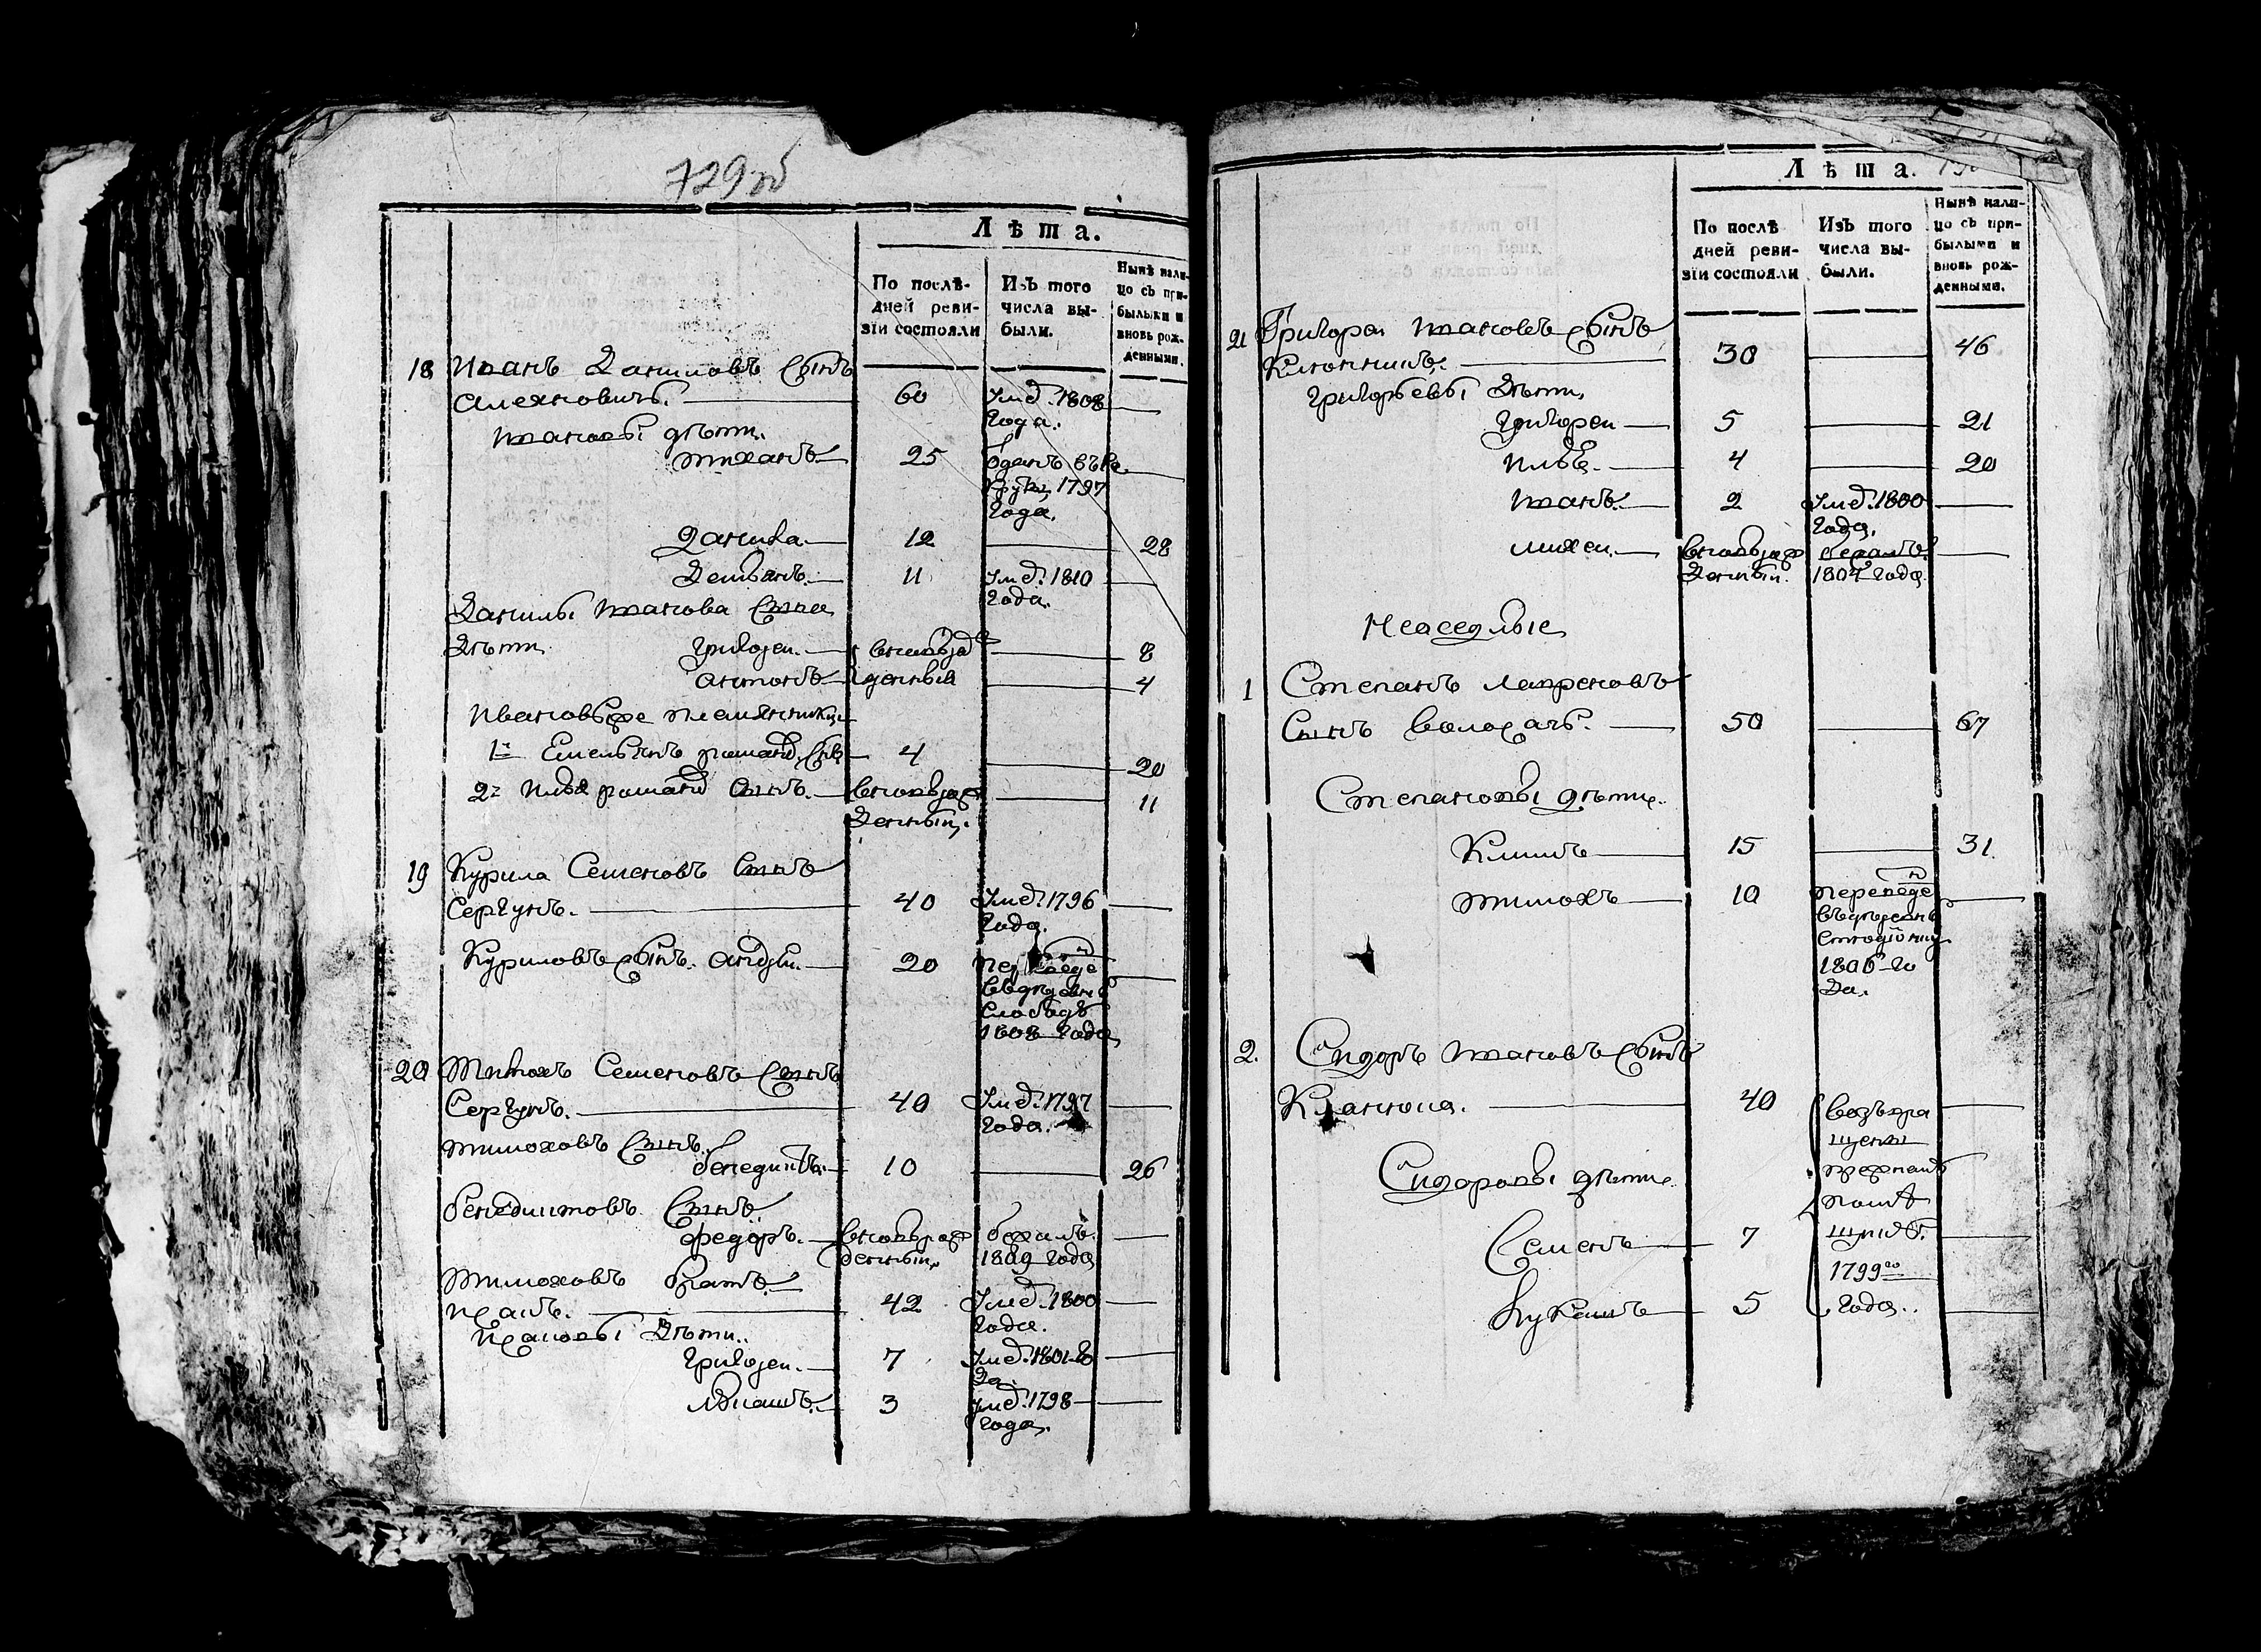 729об
Лѣта.
По послѣ-
дней реви-
зіи состояли
Изъ того
числа вы-
были.
Нынѣ нали-
цо съ при-
былыми и
вновь рож-
денными.
18 Иванъ Даниловъ Сынъ
Алехновичъ. 60 Умер. 1808
года.
Ивановы дѣти.
25 отданъ въ Ре
круты 1797
года.
Данила 12 28
Демьянъ. 11 Умер. 1810
года.
Данилы Иванова Сына
Дѣти Григорей. вновьрож 8
Антонъ денныя 4
Ивановы же племянники
1й Емельянъ романов Снъ 4 20
2й Илья романов Сынъ. вновьрож 11
Денный.
19 Курила Семеновъ Сынъ
Сергунъ. 40 Умер. 1796
года.
Куриловъ Сынъ. Андрей. 20 переведен
въ деревню
Слободу
1808 года
20 Тимохъ Семеновъ Сынъ
Сергунъ. 40 Умер. 1797
года.
Тимоховъ Сынъ.
бенедиктъ. 10 26
бенедиктовъ Сынъ
федоръ. вновьрож бежалъ
денный. 1809 года
Тимоховъ братъ.
Иванъ. 42 Умер. 1800
года.
Ивановы Дѣти.
Григорей. 7 Умер. 1801 го
да.
3 Умер. 1798
года.
Лѣта.
По послѣ
дней реви-
зіи состояли
Изъ того
числа вы-
были.
Нынѣ нали-
цо съ при-
былыми и
вновь рож-
денными.
21 Григорей Ивановъ Сынъ
30 46
Григорьевы Дѣти
Григорей 5 21
Илья. 4 20
Иванъ. 2 Умер. 1800
года.
Михей. вновьрож бежалъ
Денный. 1804 года
1 Степанъ Лавреновъ
Сынъ Волосачъ. 50 67
Степановы дѣти.
Климъ 15 31.
Тимохъ 10 переведен
въ деревню
1806 го
да.
2. Сидоръ Ивановъ Сынъ
40 возвра
щены
прежнему
помѣ
щику.
1799го
года.
Сидоровы дѣти.
Семенъ 7
Лукашъ 5